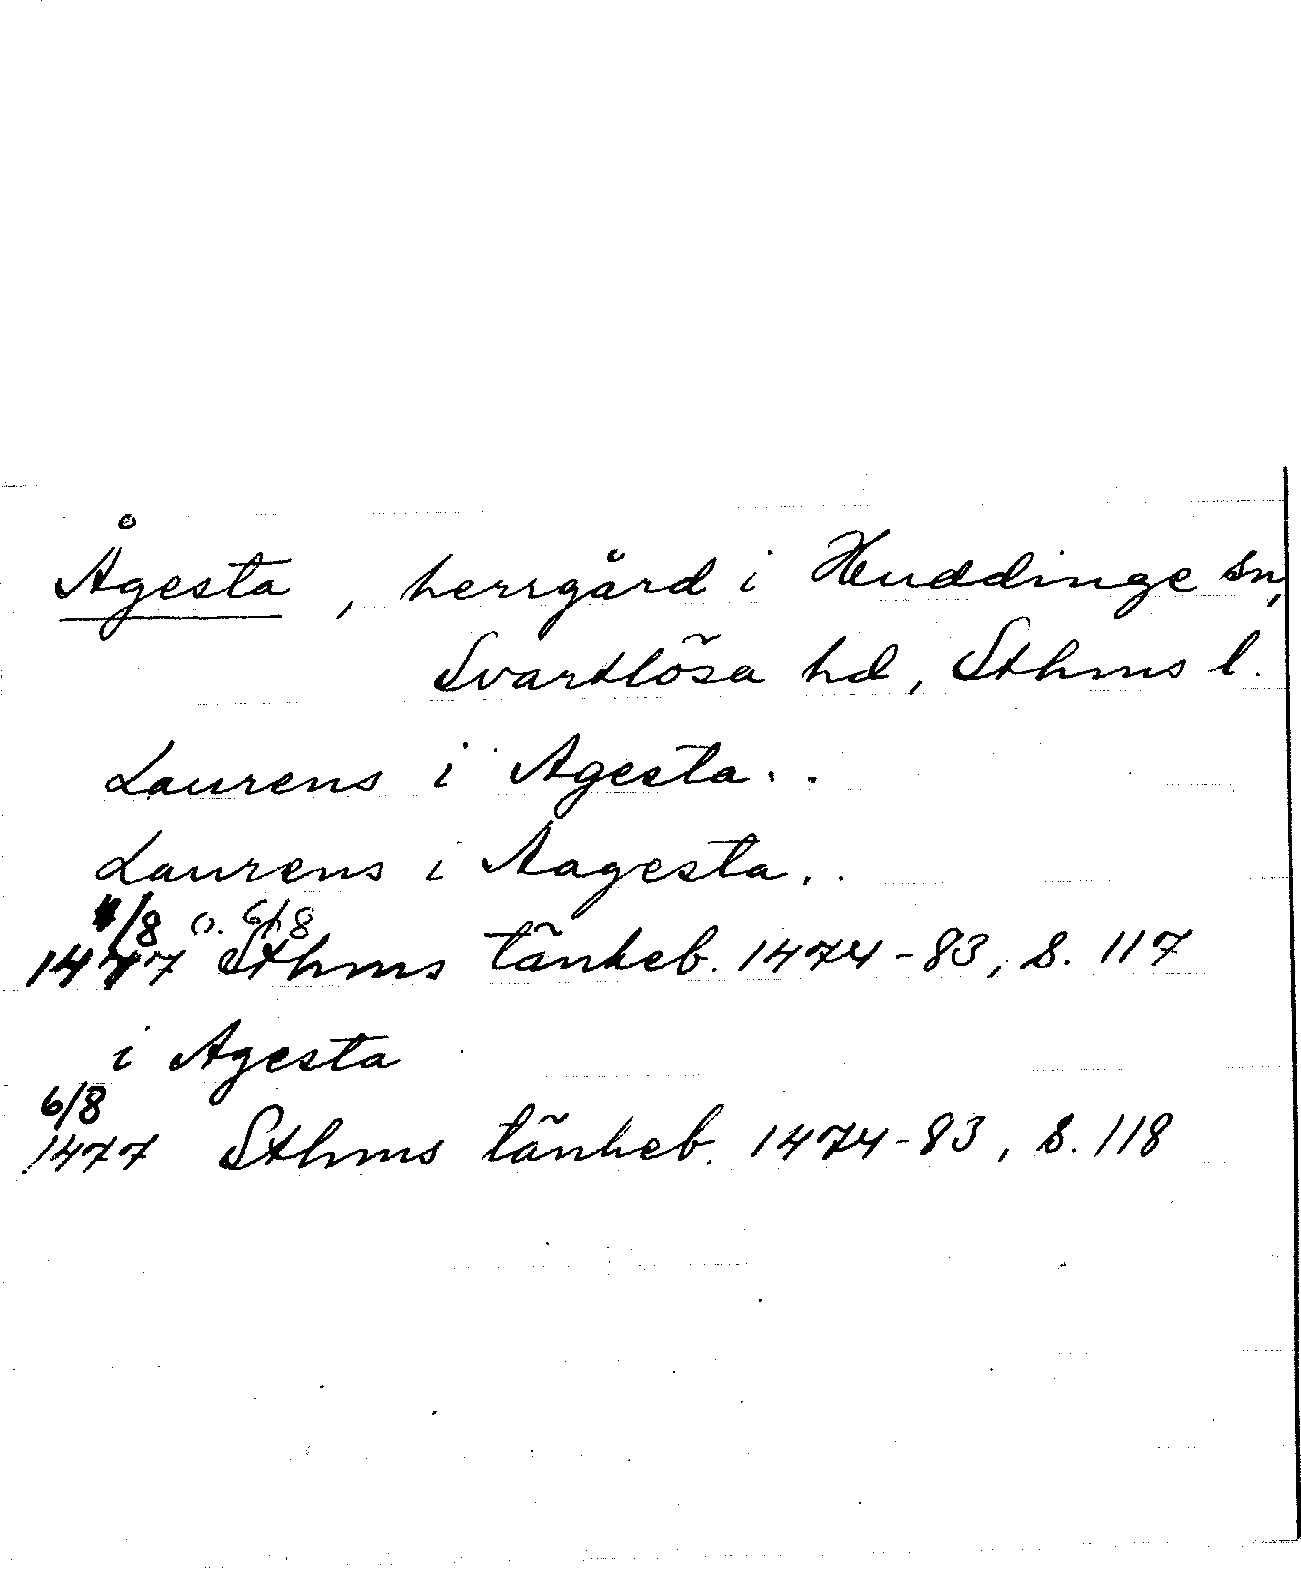 Ågesta, herrgård i Huddinge sn,
Svartlösa hd, Sthms l.
Laurens i Agesta..
Laurens i Aagesta..
4/8 o. 6/8
1477 Sthms tänkeb. 1474-83, s. 117
i Agesta
6/8
1477 Sthms tänkeb. 1474-83, s. 118